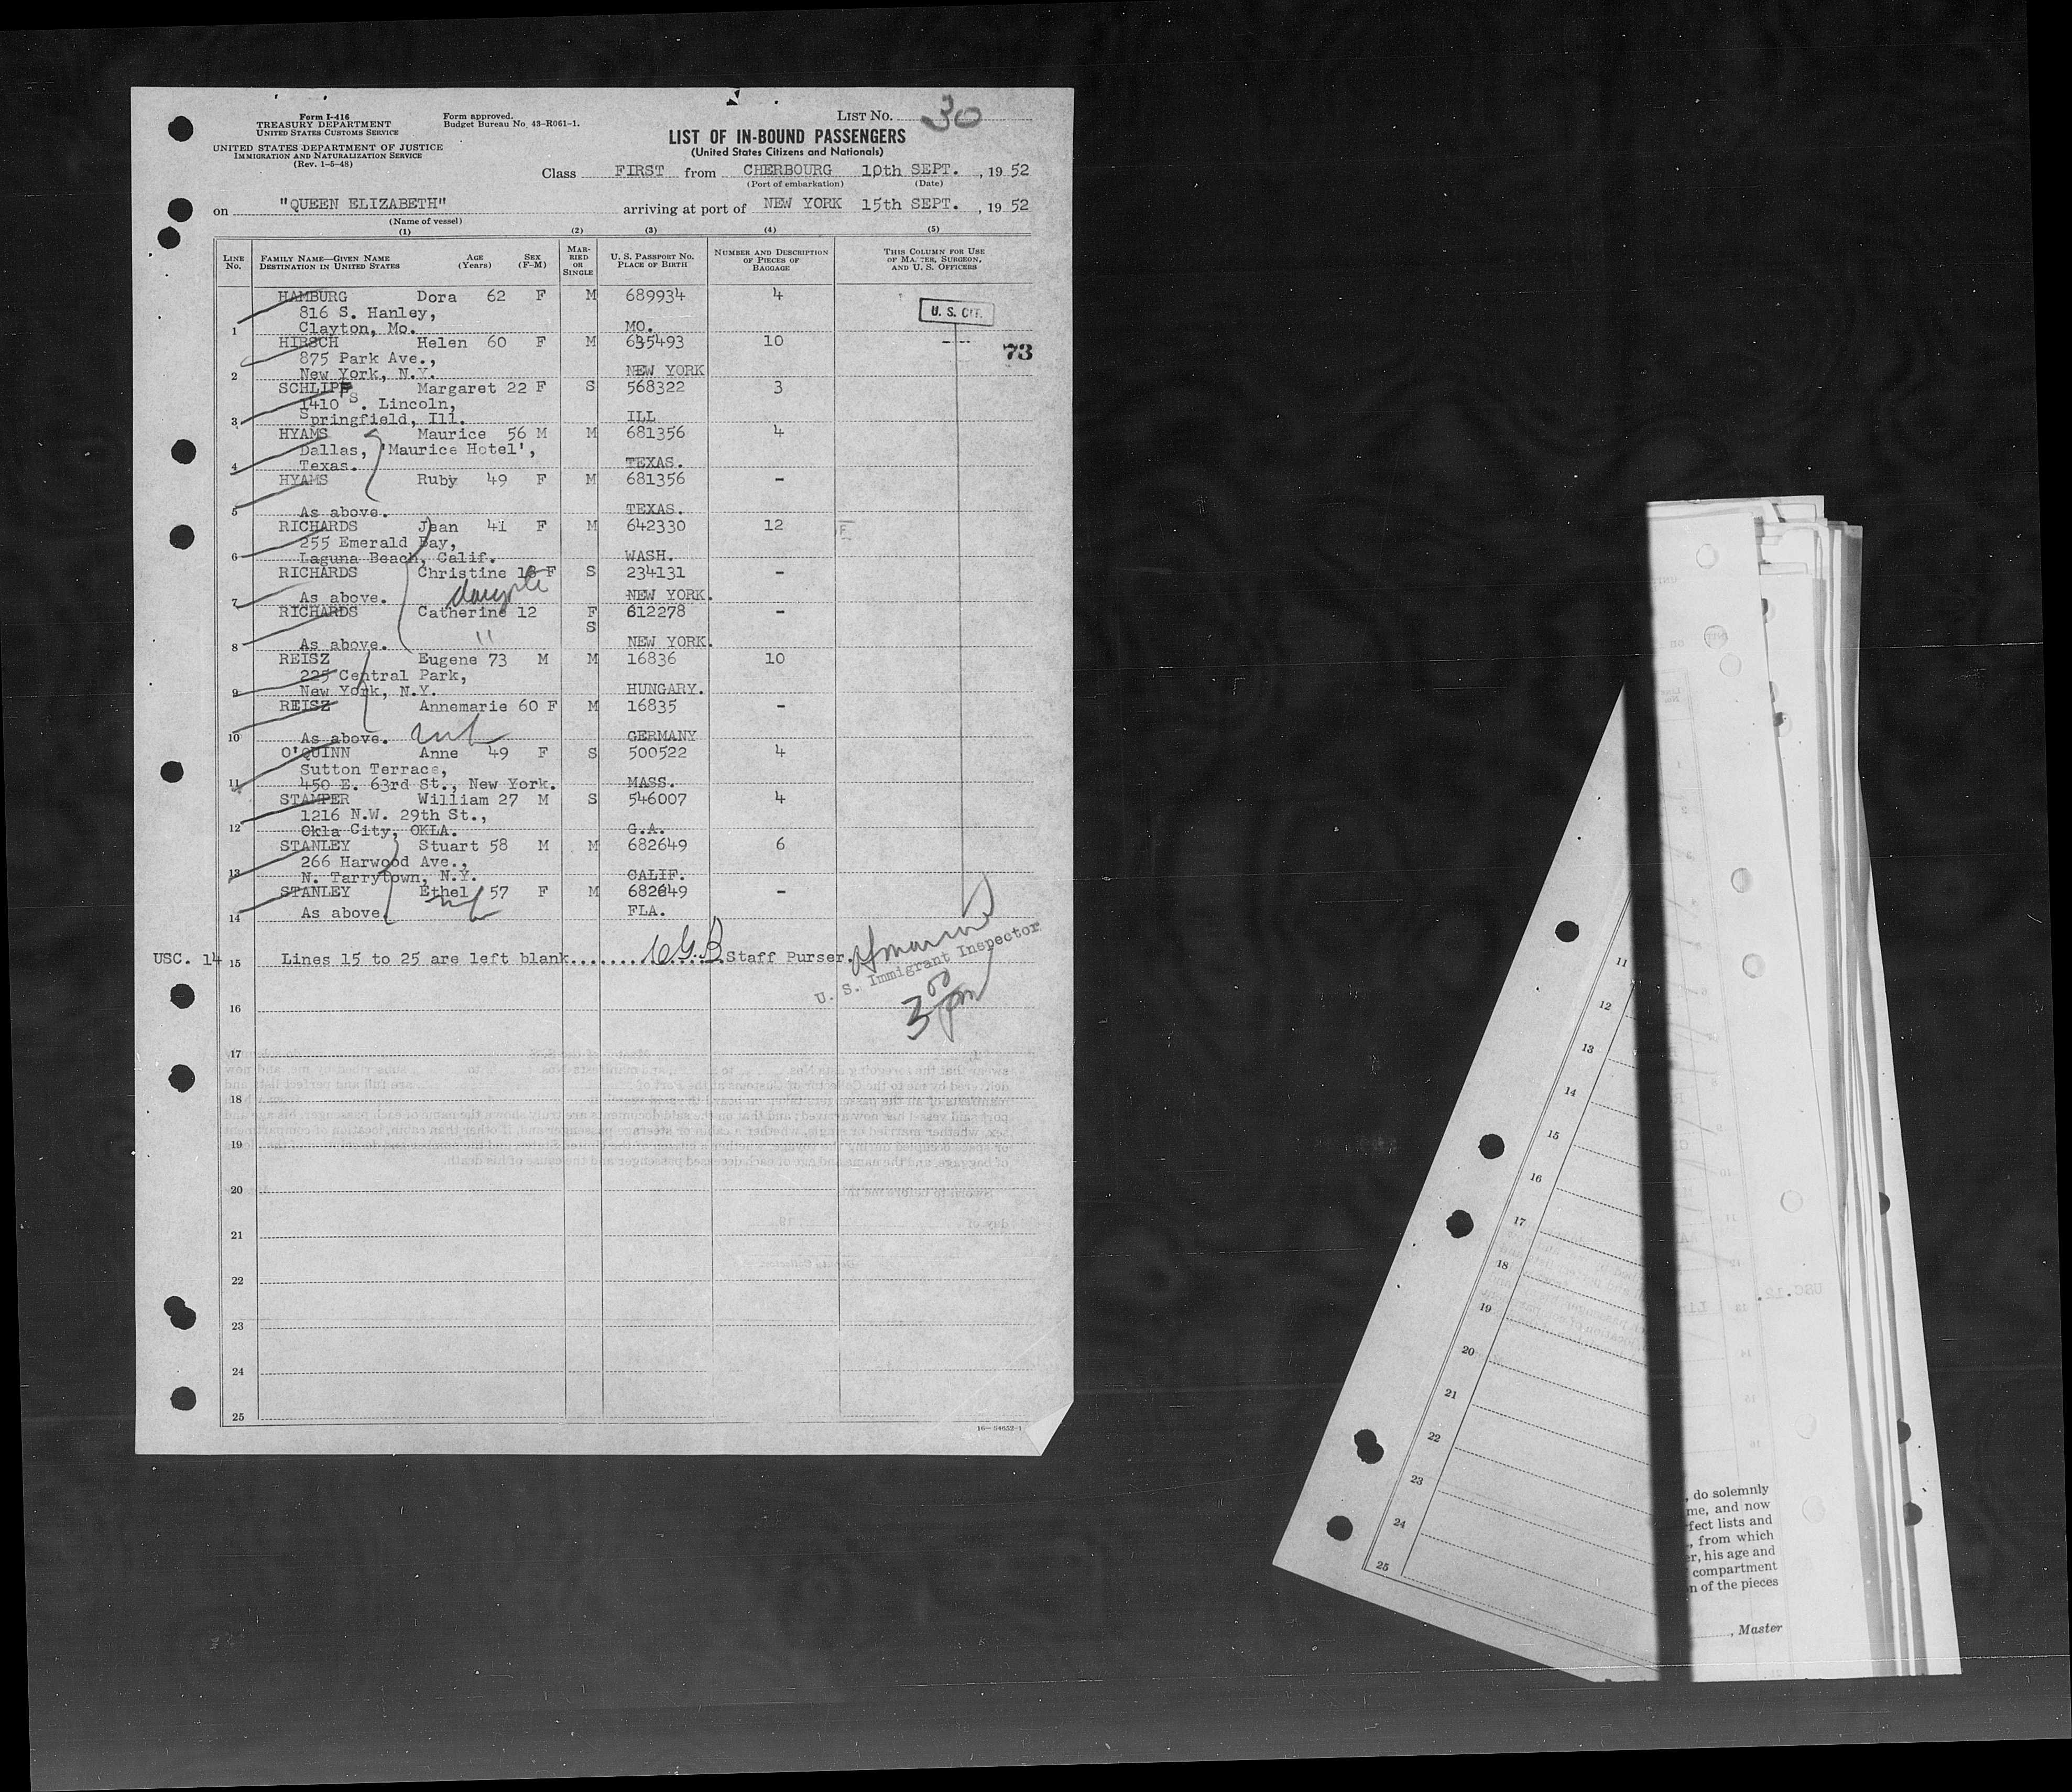 Form I-416
TREASURY DEPARTMENT
UNITED STATES CUSTOMS SERVICE
UNITED STATES DEPARTMENT OF JUSTICE
IMMIGRATION AND NATURALIZATION SERVICE
(Rev. 1-5-48)
Form approved.
Budget Bureau No. 43-R061-1.
LIST No. 30
LIST OF IN-BOUND PASSENGERS
(United States Citizens and Nationals)
Class FIRST from CHERBOURG 10th SEPT. , 19 52
(Port of embarkation) (Date)
on "QUEEN ELIZABETH" arriving at port of NEW YORK 15th SEPT. , 19 52
(Name of vessel)
(1) (2) (3) (4) (5)
LINE No. FAMILY NAME—GIVEN NAME DESTINATION IN UNITED STATES AGE (Years) SEX (F-M) MARRIED OR SINGLE U. S. PASSPORT No. PLACE OF BIRTH NUMBER AND DESCRIPTION OF PIECES OF BAGGAGE THIS COLUMN FOR USE OF MASTER, SURGEON, AND U. S. OFFICERS
HAMBURG Dora 62 F M 689934 4
816 S. Hanley, U. S. CIT.
1 Clayton, Mo. MO.
HIRSCH Helen 60 F M 635493 10
875 Park Ave., 73
2 New York, N.Y. NEW YORK
SCHLIPF Margaret 22 F S 568322 3
1410 S. Lincoln,
3 Springfield, Ill. ILL
HYAMS Maurice 56 M M 681356 4
Dallas, 'Maurice Hotel',
4 Texas. TEXAS.
HYAMS Ruby 49 F M 681356 -
5 As above. TEXAS.
RICHARDS Jean 41 F M 642330 12 F
255 Emerald Bay,
6 Laguna Beach, Calif. WASH.
RICHARDS Christine 16 F S 234131 -
7 As above. NEW YORK.
RICHARDS Catherine 12 F 612278 -
S
8 As above. " NEW YORK.
REISZ Eugene 73 M M 16836 10
225 Central Park,
9 New York, N.Y. HUNGARY.
REISZ Annemarie 60 F M 16835 -
10 As above. GERMANY
O'QUINN Anne 49 F S 500522 4
Sutton Terrace,
11 450 E. 63rd St., New York. MASS.
STAMPER William 27 M S 546007 4
1216 N.W. 29th St.,
12 Okla City, OKLA. G.A.
STANLEY Stuart 58 M M 682649 6
266 Harwood Ave.,
13 N. Tarrytown, N.Y. CALIF.
STANLEY Ethel 57 F M 682649 -
14 As above. FLA.
USC. 14 15 Lines 15 to 25 are left blank........... Staff Purser.
U. S. Immigrant Inspector
3 00 pm
16
17
18
19
20
21
22
23
24
25
16—54652-1
11
12
13
14
15
16
17
18
19
20
21
22
23
24
25
, do solemnly
me, and now
fect lists and
, from which
er, his age and
compartment
n of the pieces
, Master